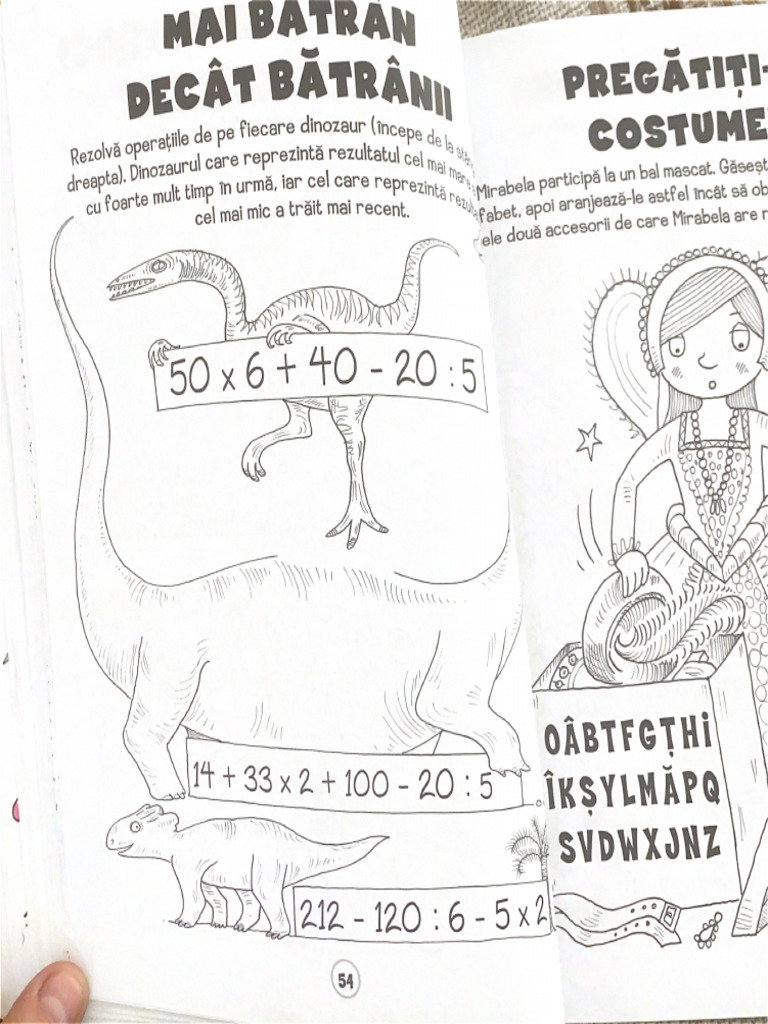 MAI BĂTRÂN
DECÂT BĂTRÂNII
Rezolvă operațiile de pe fiecare dinozaur (începe de la
dreapta). Dinozaurul care reprezintă rezultatul cel mai mare
cu foarte mult timp în urmă, iar cel care reprezintă
cel mai mic a trăit mai recent.
50 x 6 + 40 - 20 : 5
14 + 33 x 2 + 100 - 20 : 5
212 - 120 : 6 - 5 x 2
54
PREGĂTIȚI-
COSTUME
Mirabela participă la un bal mascat. Găseșt
fabet, apoi aranjează-le astfel încât să ob
ele două accesorii de care Mirabela are n
OÂBTFGȚHi
ÎKȘYLMĂPQ
SVDWXJNZ